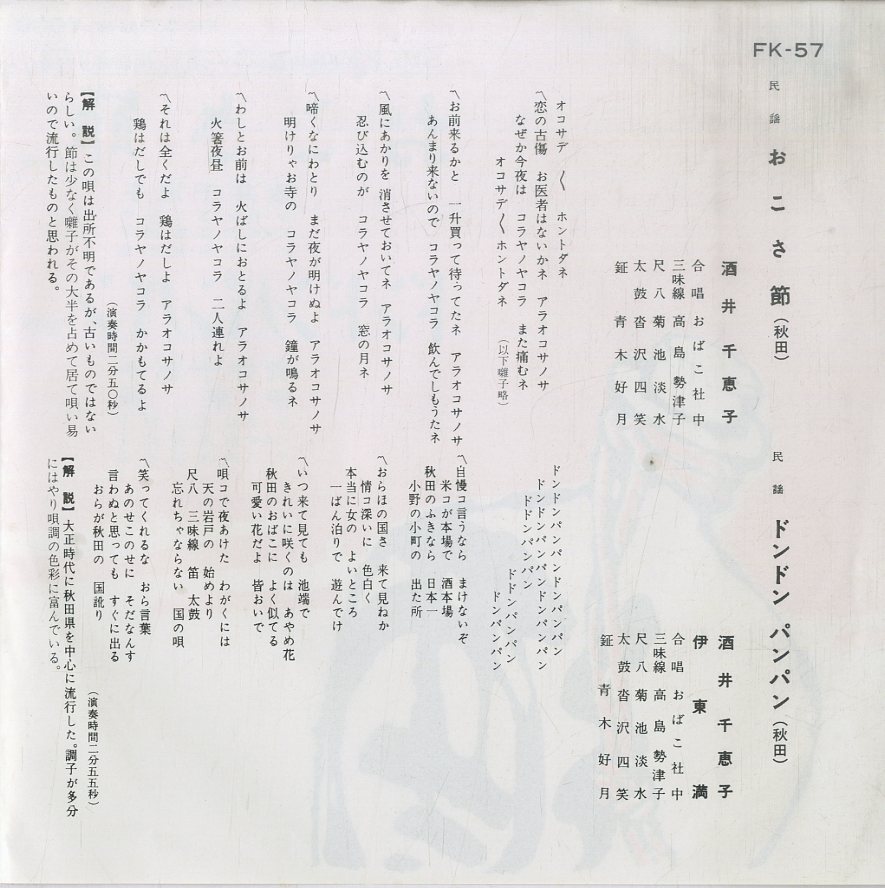 FK-57
民謡 おこさ節(秋田)
酒井千恵子
合唱 おばこ社中
三味線 高島勢津子
尺八 菊池淡水
太鼓 沓沢四笑
鉦 青木好月
オコサデ〱 ホントダネ
〽恋の古傷 お医者はないかネ アラオコサノサ
なぜか今夜は コラヤノヤコラ また痛むネ
オコサデ〱ホントダネ (以下囃子略)
〽お前来るかと 一升買って待ってたネ アラオコサノサ
あんまり来ないので コラヤノヤコラ 飲んでしもうたネ
〽風にあかりを 消させておいてネ アラオコサノサ
忍び込むのが コラヤノヤコラ 窓の月ネ
〽啼くなにわとり まだ夜が明けぬよ アラオコサノサ
明けりゃお寺の コラヤノヤコラ 鐘が鳴るネ
〽わしとお前は 火ばしにおとるよ アラオコサノサ
火箸夜昼 コラヤノヤコラ 二人連れよ
〽それは全くだよ 鶏はだしよ アラオコサノサ
鶏はだしでも コラヤノヤコラ かかもてるよ
(演奏時間二分五〇秒)
【解 説】この唄は出所不明であるが、古いものではない
らしい。節は少なく囃子がその大半を占めて居て唄い易
いので流行したものと思われる。
民謡 ドンドンパンパン(秋田)
酒井千恵子
伊東満
合唱 おばこ社中
三味線 高島勢津子
尺八 菊池淡水
太鼓 沓沢四笑
鉦 青木好月
ドンドンパンパンドンパンパン
ドンドンパンパンドンパンパン
ドドンパンパン
ドドンパンパン
ドンパンパン
〽自慢コ言うなら まけないぞ
米コが本場で 酒本場
秋田のふきなら 日本一
小野の小町の 出た所
〽おらほの国さ 来て見ねか
情コ深いに 色白く
本当に女の よいところ
一ばん泊りで 遊んでけ
〽いつ来て見ても 池端で
きれいに咲くのは あやめ花
秋田のおばこに よく似てる
可愛い花だよ 皆おいで
〽唄コで夜あけた わがくには
天の岩戸の 始めより
尺八 三味線 笛 太鼓
忘れちゃならない 国の唄
〽笑ってくれるな おら言葉
あのせこのせに そだなんす
言わぬと思っても すぐに出る
おらが秋田の 国訛り
(演奏時間二分五五秒)
【解 説】大正時代に秋田県を中心に流行した。調子が多分
にはやり唄調の色彩に富んでいる。